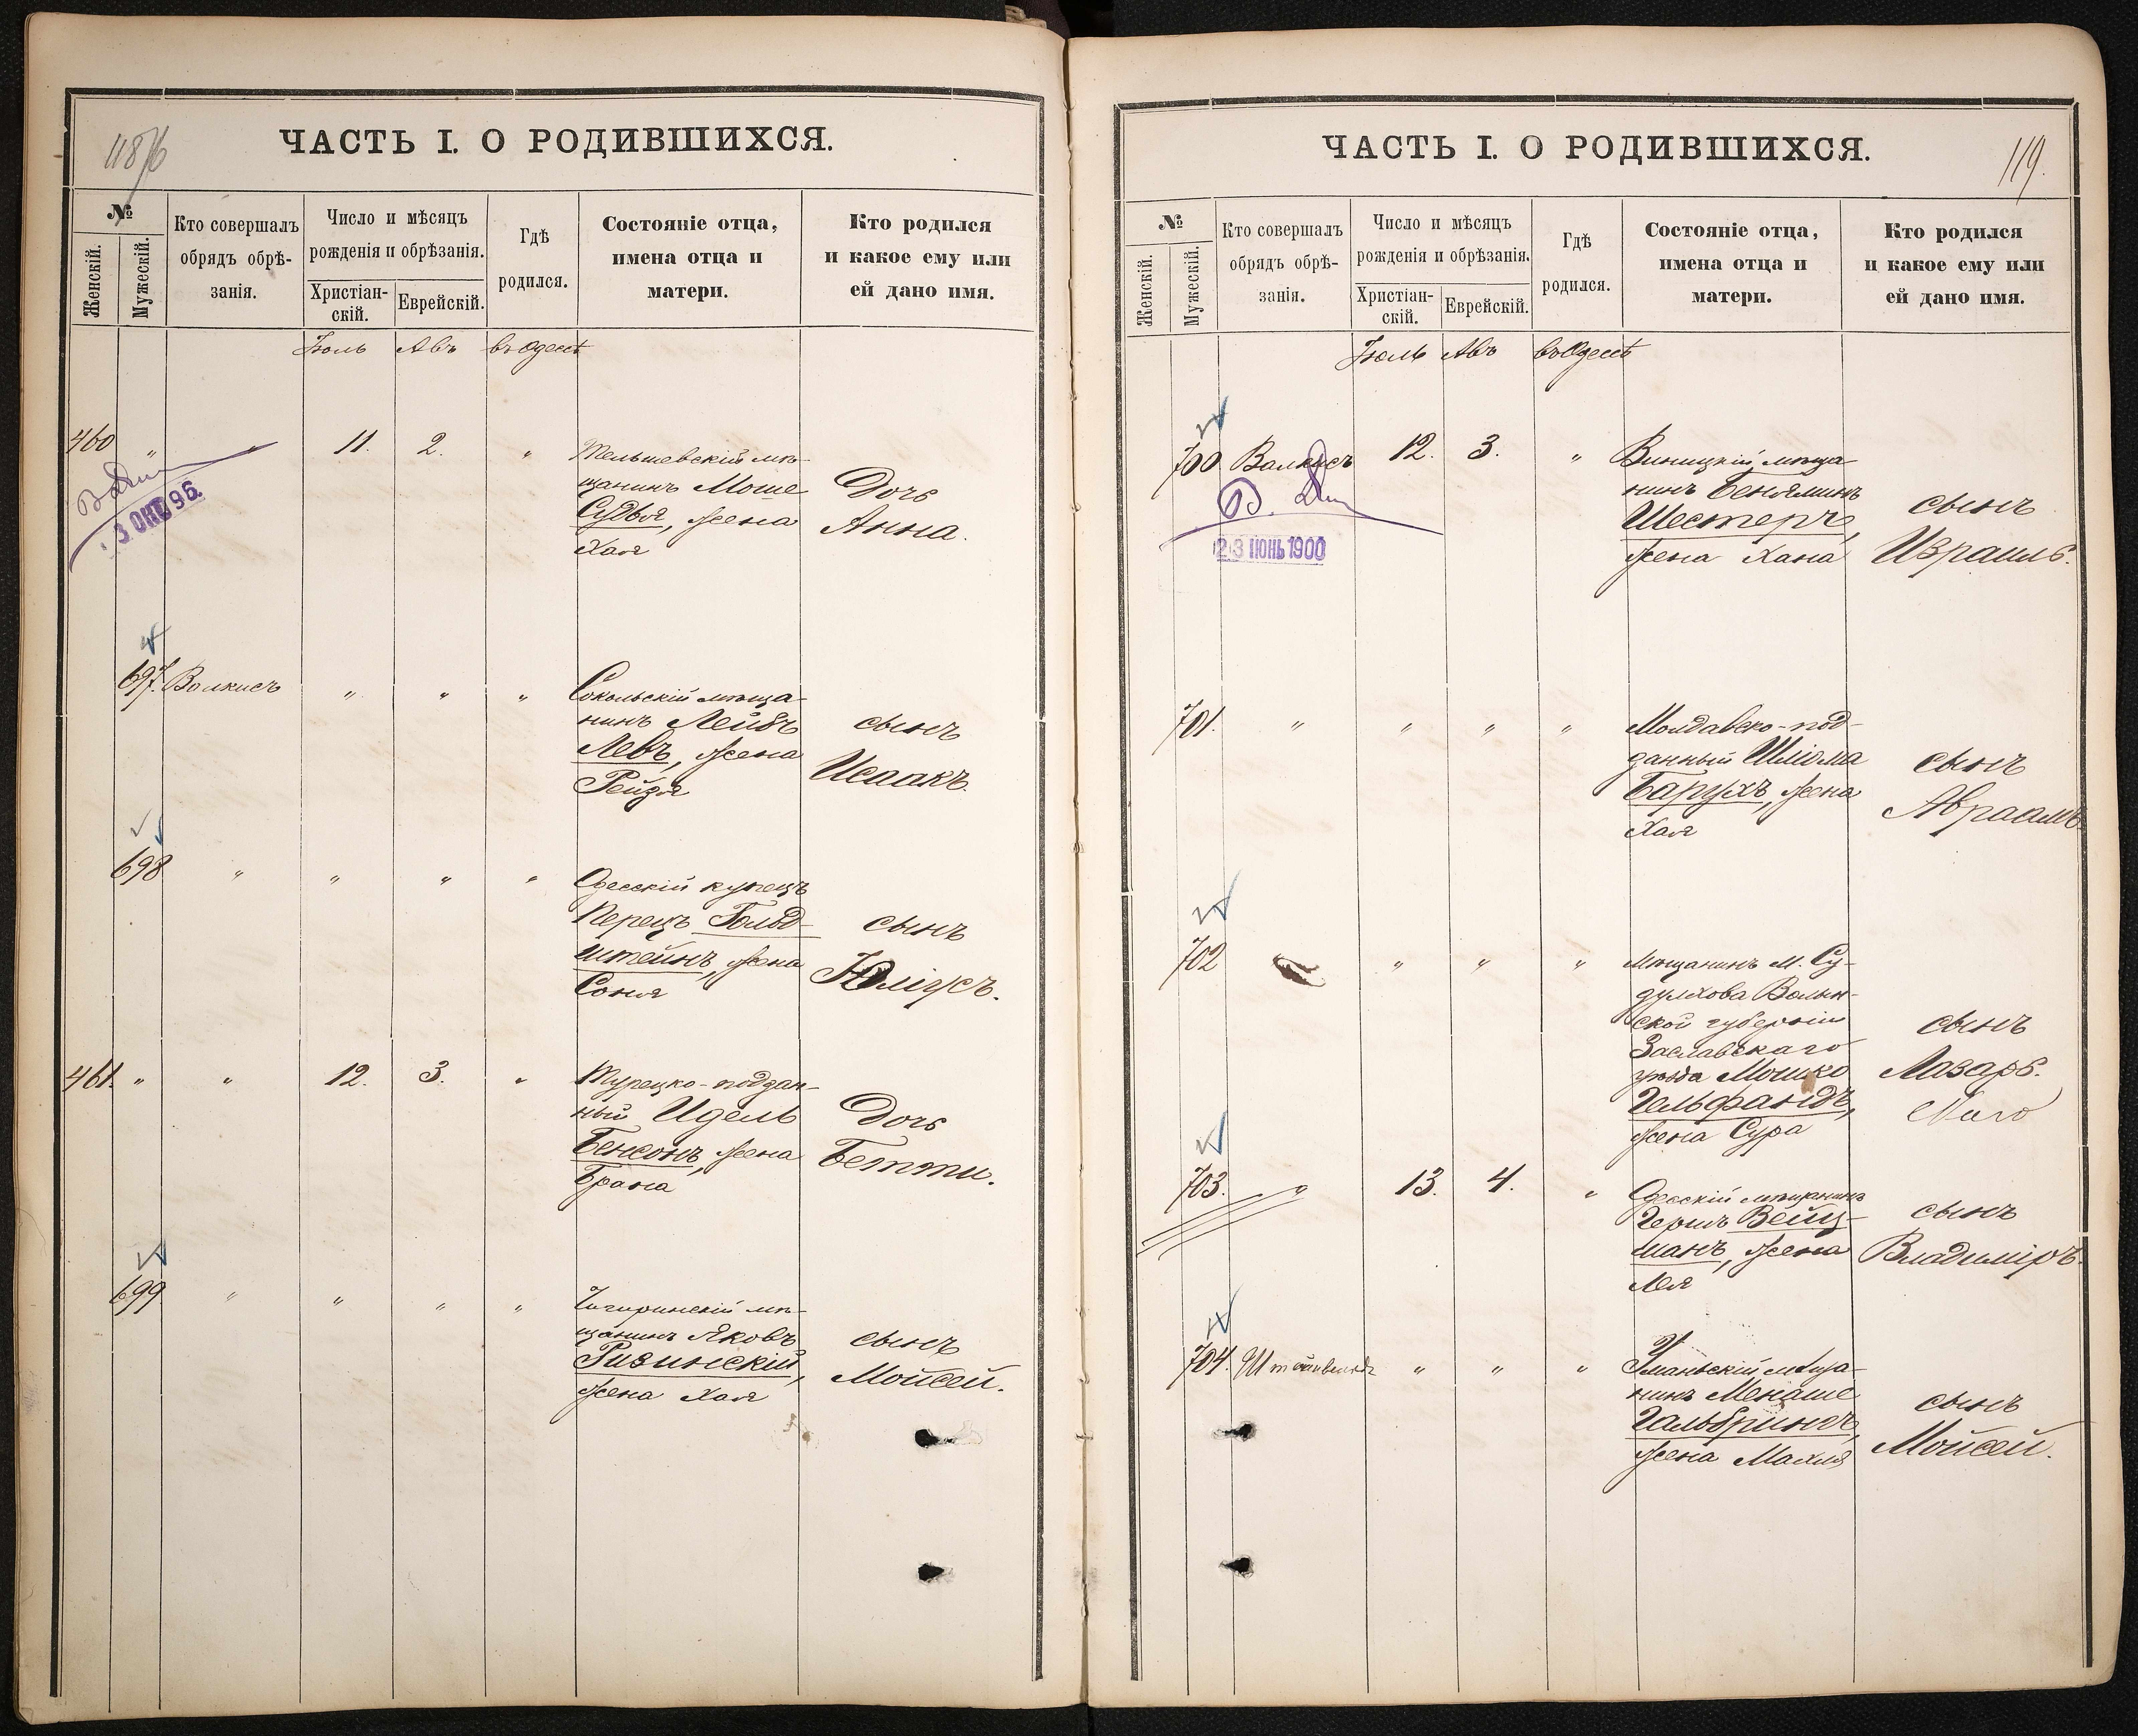 118/6
ЧАСТЬ I. О РОДИВШИХСЯ.
№
Женскій.
Мужескій.
Кто совершалъ
обрядъ обрѣ-
занія.
Число и мѣсяцъ
рожденія и обрѣзанія.
Христіан-
скій.
Еврейскій.
Гдѣ
родился.
Состояніе отца,
имена отца и
матери.
Кто родился
и какое ему или
ей дано имя.
Іюль Авъ въ Одессѣ
460 " " 11. 2. "
Тельшевскій мѣ-
щанинъ Моше
Судья, жена
Хая
Дочь
Анна.
3 ОКТ 96.
697. Волкисъ " " "
Сокольскій мѣща-
нинъ Лейбъ
Левъ, жена
Рейзя
сынъ
Исаакъ.
698 " " " "
Одесскій купецъ
Перецъ Гольд-
штейнъ, жена
Соня
сынъ
Юліусъ.
461. " " 12. 3. "
Турецко-поддан-
ный Идель
Бенсонъ, жена
Брана
Дочь
Бетти.
699 " " " "
Чигиринскій мѣ-
щанинъ Яковъ
Ризинскій,
жена Хая
сынъ
Мойсей.
119.
ЧАСТЬ I. О РОДИВШИХСЯ.
№
Женскій.
Мужескій.
Кто совершалъ
обрядъ обрѣ-
занія.
Число и мѣсяцъ
рожденія и обрѣзанія.
Христіан-
скій.
Еврейскій.
Гдѣ
родился.
Состояніе отца,
имена отца и
матери.
Кто родился
и какое ему или
ей дано имя.
Іюль Авъ въ Одессѣ
700. Волкисъ 12. 3. "
23 ІЮНЬ 1900
Виницкій мѣща-
нинъ Беньяминъ
Шестеръ,
жена Хана
сынъ
Израиль.
701. " " " "
Молдавско-под-
данный Шліома
Барухъ, жена
Хая
сынъ
Авраамъ.
702 " " "
Мѣщанинъ м. Су-
дулкова Волын-
ской губерніи
Заславскаго
уѣзда Мошко
Гельфандъ,
жена Сура
сынъ
Лазарь.
703. " 13. 4. "
Одесскій мѣщанинъ
Гершъ Вейц-
манъ, жена
Лея
сынъ
Владиміръ.
704. " " "
Уманьскій мѣща-
нинъ Менаше
Гальбринъ,
жена Махля
сынъ
Мойсей.